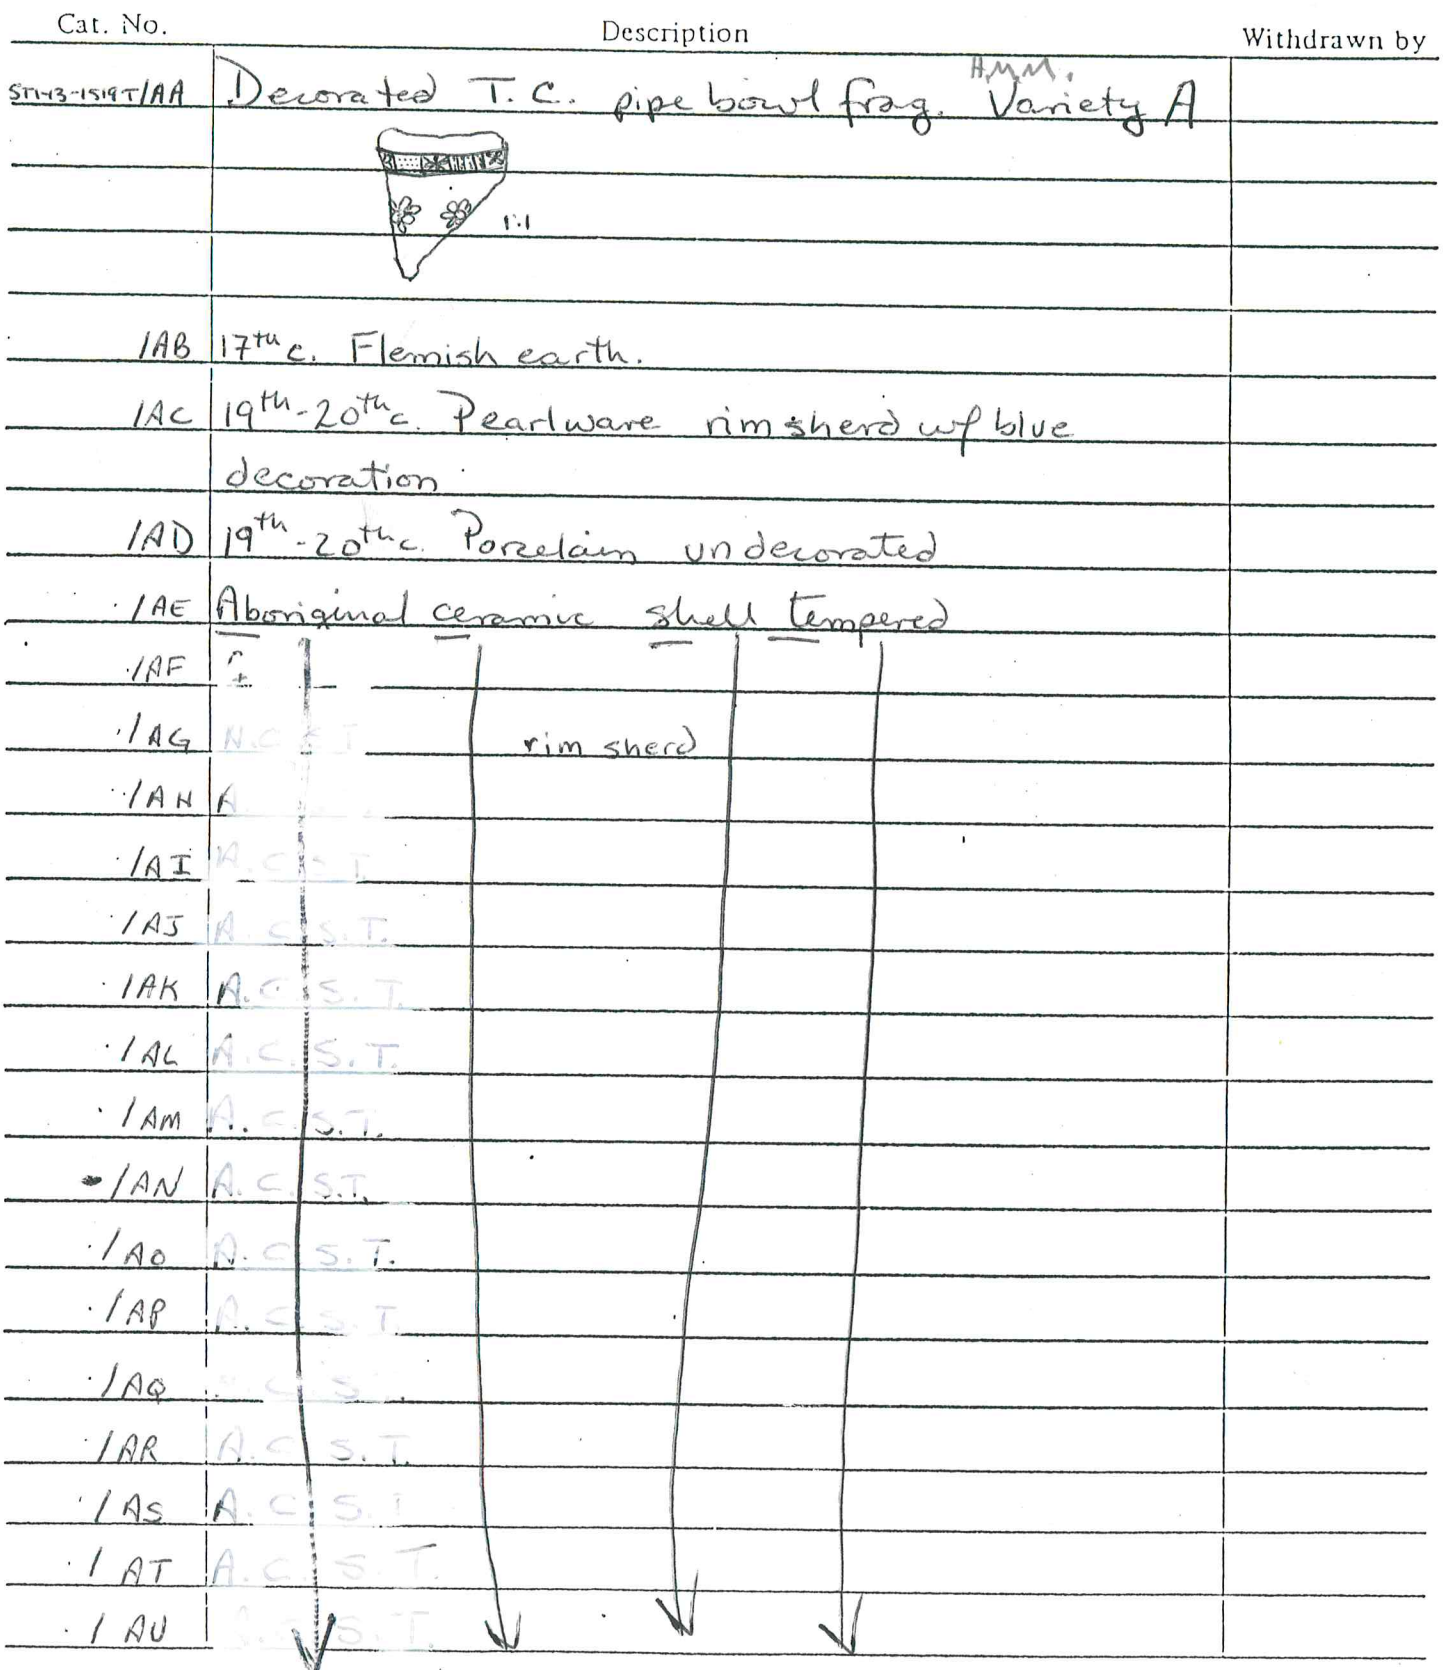 Cat. No. Description Withdrawn by
H.M.M.
ST1-13-1519T/AA Decorated T.C. pipe bowl frag. Variety A
1:1
/AB 17th c. Flemish earth.
/AC 19th-20th c. Pearlware rim sherd w/ blue
decoration
/AD 19th-20th c. Porzelain undecorated
/AE Aboriginal ceramic shell tempered
/AF
/AG N.C.S.T. rim sherd
/AH A.
/AI A.C.S.T.
/AJ A.C.S.T.
/AK A.C.S.T.
/AL A.C.S.T.
/AM A.C.S.T.
/AN A.C.S.T.
/AO A.C.S.T.
/AP A.C.S.T.
/AQ C.S.
/AR A.C.S.T.
/AS A.C.S.T
/AT A.C.S.T.
/AU S.T.